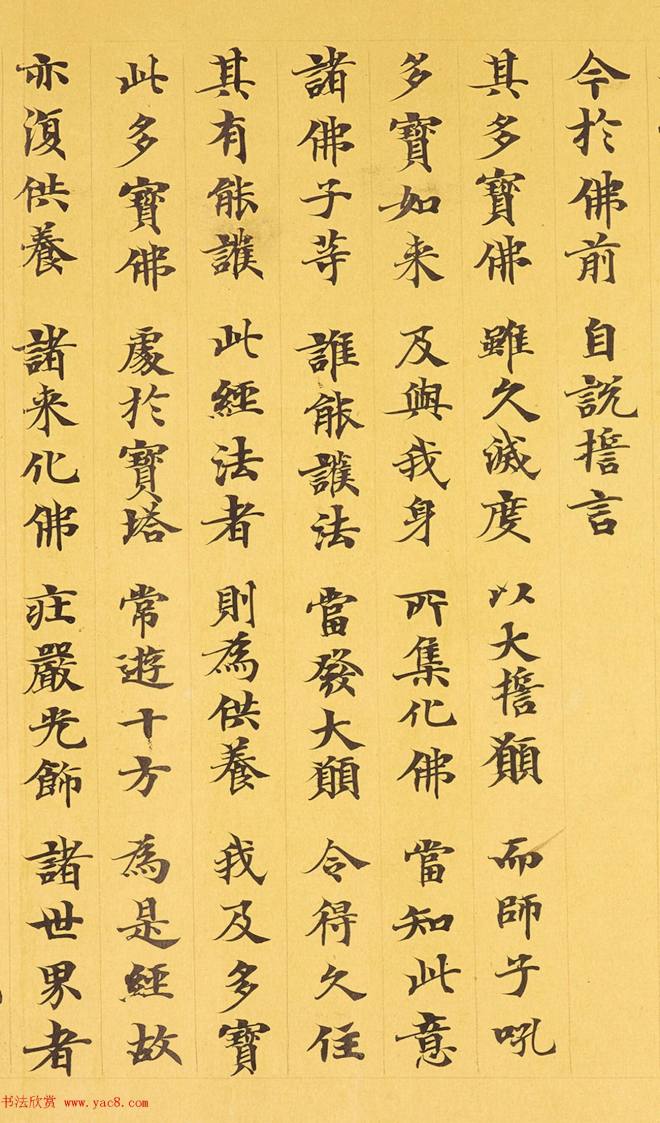 今於佛前 自說擔言
其多寶佛 雖久滅度 以大擔願 而師子吼
多寶如来 及與我身 所集化佛 當知此意
諸佛子等 誰能護法 當發大願 令得久住
其有能護 此經法者 則為供養 我及多寶
此多寶佛 處於寶塔 常遊十方 為是經故
亦復供養 諸来化佛 莊嚴光飾 諸世界者
书法欣赏 www.yac8.com